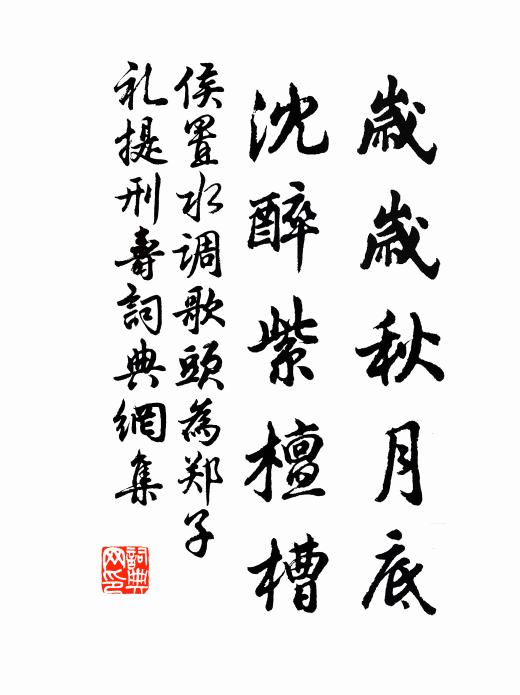 歲歲秋月底
沈醉紫檀槽
侯置水调歌頭為郑子
礼提刑壽詞典網集
詞典
网印